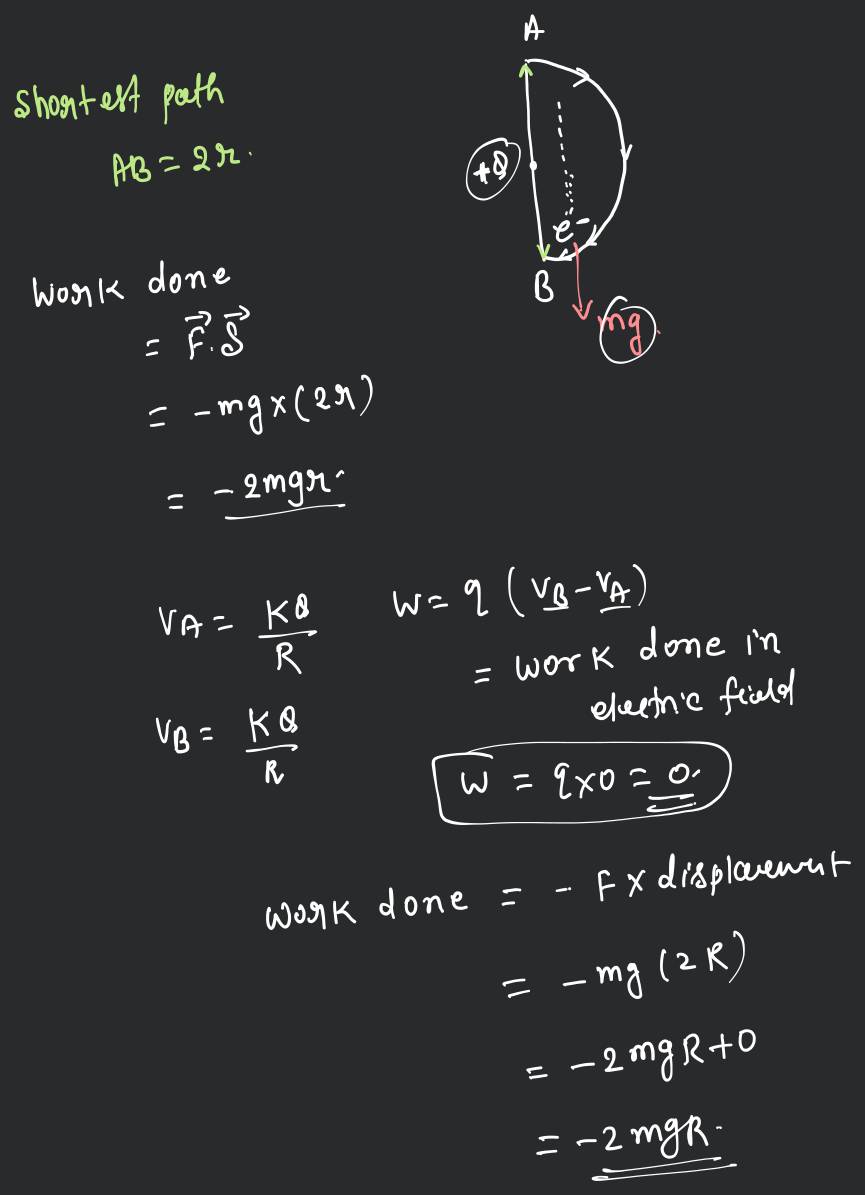 A
shortest path
AB = 2r.
+Q
e⁻
B
mg.
work done
= F⃗.S⃗
= -mg×(2r)
= -2mgr.
VA = KQ/R
W = q (VB-VA)
= work done in
electric field
VB = KQ/R
W = q×0 = 0.
work done = - F × displacement
= -mg (2R)
= -2mgR+0
= -2mgR.